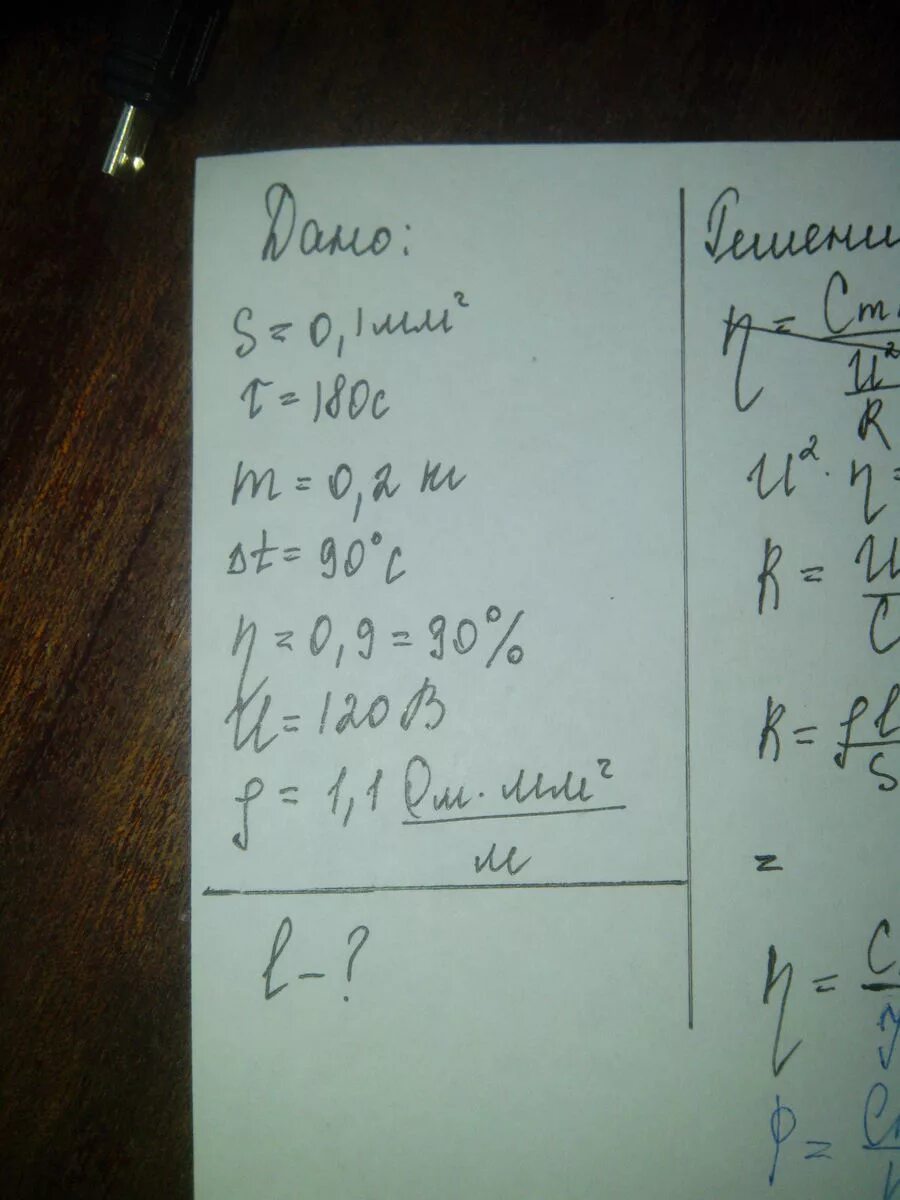 Дано:
S = 0,1 мм²
τ = 180с
m = 0,2 кг
Δt = 90°C
η = 0,9 = 90%
U = 120 В
ρ = 1,1 Ом · мм²
м
l - ?
Решени
η = Cm
U²
R
U² · η =
R = U
C
R = ρl
S
=
η = C
φ = Cm